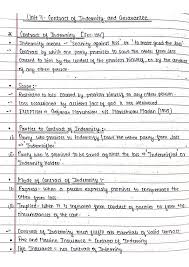 Unit 4: Contract of Indemnity and Guarantee
* Contract of Indemnity [Sec-124]
Indemnity means - "security against loss" or "to make good the loss"
Contract by which one party promises to save the other from loss
caused to him by the conduct of the promisor himself, or by the conduct
of any other person.
* Scope:
Restricted to loss caused by promisor himself or any other person
loss occasioned by accident or act of god is not
Exception - Gajanan Moreshwar vs. Moreshwar Madan [1942]
* Parties to Contract of Indemnity:
Party who promises to indemnify / save the other party from loss
= Indemnifier
Party who is promised to be saved against the loss = Indemnified or
Indemnity holder
* Mode of Contract of Indemnity:
Express: When a person expressly promises to compensate
the other from loss
Implied: When it is from conduct of parties or from the
circumstances of the case
Contract of Indemnity must fulfil all essentials of Valid Contract
Fire and Marine Insurance = Contract of Indemnity
Life Insurance = not Contract of Indemnity